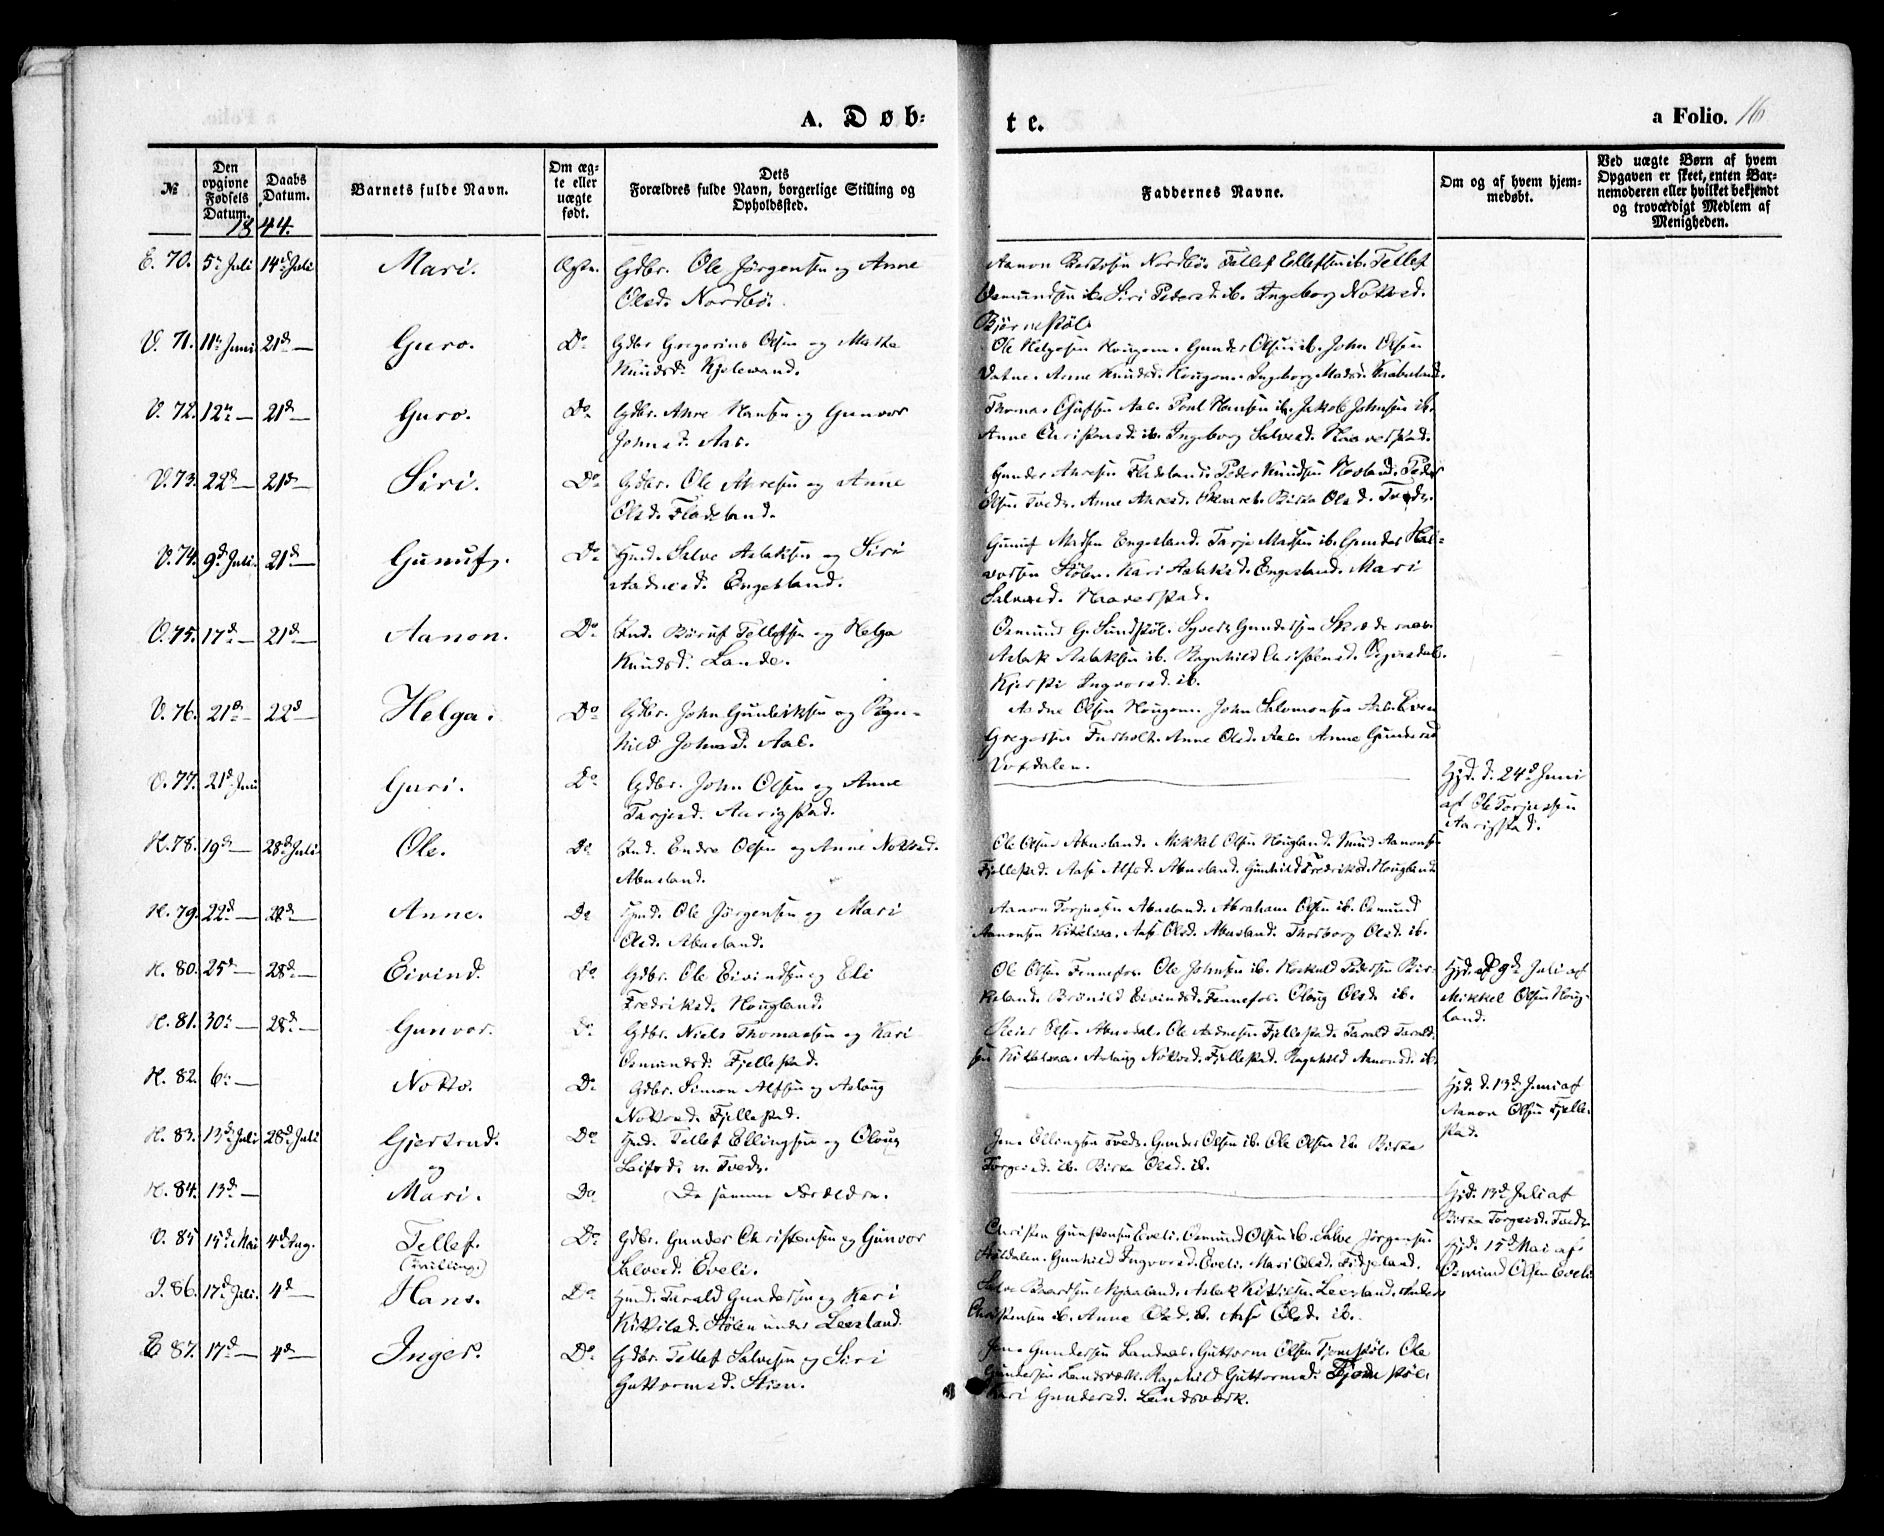 A. Døb-
te.
a Folio. 16
№
Den opgivne Fødsels Datum.
Daabs Datum.
Barnets fulde Navn.
Om ægte eller uægte født.
Dets Forældres fulde Navn, borgerlige Stilling og Opholdssted.
Faddernes Navne.
Om og af hvem hjemmedøbt.
Ved uægte Børn af hvem Opgaven er skeet, enten Barnemoderen eller hvilket bekjendt og troværdigt Medlem af Menigheden.
1844.
E. 70. 5te Juli 14de Juli Mari. Ægte. Gdbr. Ole Jørgensen og Anne
Olsd. Nordbø.
Nordbø Tellef Ellefsen ib. Tellef
Osmundsen ib. Siri Pedersd. ib. Ingeborg
V. 71. 11te Juni 21de — Guro. Do Gdbr Gregorius Olsen og
Knudsd. Kjelevand.
Ole Helgesen Hougom. Gunder Olsen ib. John Olsen
Vatne. Anne Knudsd. Hougom. Ingeborg Madsd.
V. 72. 12te — 21de — Guro. Do Gdbr. Anre Hansen og Gunvor
Johnsd. Aas.
Thomas Olufsen Aas. Poul Hansen ib. Jakob Johnsen ib.
Anne Christensd. ib. Ingeborg Salvesd. Haaverstad.
V. 73. 22de — 21de — Siri. Do Gdbr. Ole Anresen og Anne
Olsd. Fladeland.
Gunder Anresen Fladeland. Peder Knudsen Hovland. Peder
Olsen Tvedt. Anne Anresd. Birte Olsd. Tvedt.
V. 74. 9de Juli. 21de — Gunuf. Do Hmd. Salve Aslaksen og Siri
Aadnesd. Engesland.
Gunuf Madsen Engesland. Tarje Madsen ib. Gunder Hal-
vorsen Stølen. Kari Aslaksd. Engesland. Mari
Salvesd. Haaverstad.
V. 75. 17de — 21de — Aanon. Do Ind. Tellefsen og Helga
Knudsd. Lande.
Osmund G. Sundstøl. Syvert Gundersen
Aslak Aslaksen ib. Ragnhild Christensd.
Kjersti Ingvorsd. ib.
V. 76. 21de — 22de — Helga. Do Gdbr. John Gunderksen og Ragn-
hild Johnsd. Aas.
Aadne Olsen Hougom. John Salomonsen Aas. Even
Gregersen Furholt. Anne Olsd. Aas. Anne Gundersd
V. 77. 21de Juni Guri. Do Gdbr. John Olsen og Anne
Tarjesd. Aarigstad.
Hjd. d. 24de Juni
af Ole Torjussen
Aarigstad.
H. 78. 19de — 28de Juli Ole. Do Ind. Endre Olsen og Anne Nottosd.
Abusland.
Ole Olsen Abusland. Mikkel Olsen Hougland. Knud Aanons.
Fjellestad. Aase Alfsd. Abusland. Gunhild Fredriksd. Hougland.
H. 79. 22de — 28de — Anne. Do Hmd. Ole Jørgensen og Mari
Olsd. Abusland.
Aanon Torjussen Abusland. Abraham Olsen ib. Osmund
Aanonsen Kittelsaa. Aase Olsd. Abusland. Thorborg Olsd. ib.
H. 80. 25de — 28de — Eivind. Do Gdbr. Ole Eivindsen og Eli
Fredriksd. Hougland.
Ole Olsen Fennefos. Ole Johnsen ib. Hoskuld Pedersen Bir-
keland. Brønild Eivindsd. Fennefos. Oloug Olsd. ib.
Hjd. d. 9de Juli af
Mikkel Olsen Houg-
land.
H. 81. 30te — 28de — Gunvor. Do Gdbr. Niels Thomassen og Kari
Osmundsd. Fjellestad.
Steier Olsen Abusdal. Ole Aadnesen Fjellestad. Tarald Tarald-
sen Kittelsaa. Aslaug Nottosd. Fjellestad. Ragnhild Aanonsd. ib.
H. 82. 6te — Notto. Do Gdbr. Simon Alfsen og Aslaug
Nottosd. Fjellestad.
Hjd. d. 13de Juni af
Aanon Olsen Fjelle-
stad.
H. 83. 13de Juli 28de Juli Gjertrud. Do Hmd. Tellef Ellingsen og Oloug
Leifsd. n. Tvedt.
Jens Ellingsen Tvedt. Gunder Olsen ib. Ole Olsen ib. Birte
Torgersd. ib. Birte Olsd. ib.
og
H. 84. 13de — Mari. Do De samme Forældre.
Hjd. 13de Juli af
Birte Torgersd. Tvedt.
V. 85 15de Mai 4de Aug. Tellef. Do Gdbr. Gunder Christensen og Gunvor
(Tvilling)
Salvesd. Eveli.
Christen Gunstensen Eveli. Osmund Olsen ib. Salve Jørgensen
Gunhild Ingvorsd. Eveli. Mari Olsd. Fidjeland.
Hjd. 15de Mai af
Osmund Olsen Eveli
I. 86. 17de Juli. 4de — Hans. Do Hmd. Tarald Gundersen og Kari
Kittilsd. Stølen under Leesland.
Salve Baardsen Mjaaland. Aslak Kittelsen Leesland. Anders
Christensen ib. Anne Olsd. ib. Aase Olsd. ib.
E 87. 17de — 4de — Inger. Do Gdbr. Tellef Salvesen og Siri
Guttormsd. Stien.
Jens Gundersen Landaas. Guttorm Olsen Fjomstøl. Ole
Gundersen Landsværk. Ragnhild Guttormsd.
Kari Gundersd. Landsværk.